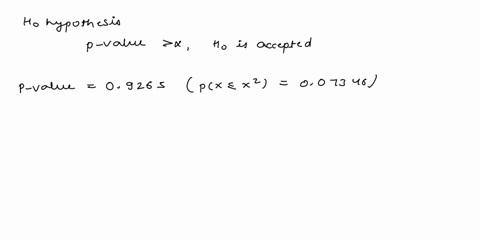 Ho hypothesis
p-value >α, Ho is accepted
p-value = 0.9265 (p(x ≤ x²) = 0.07346)